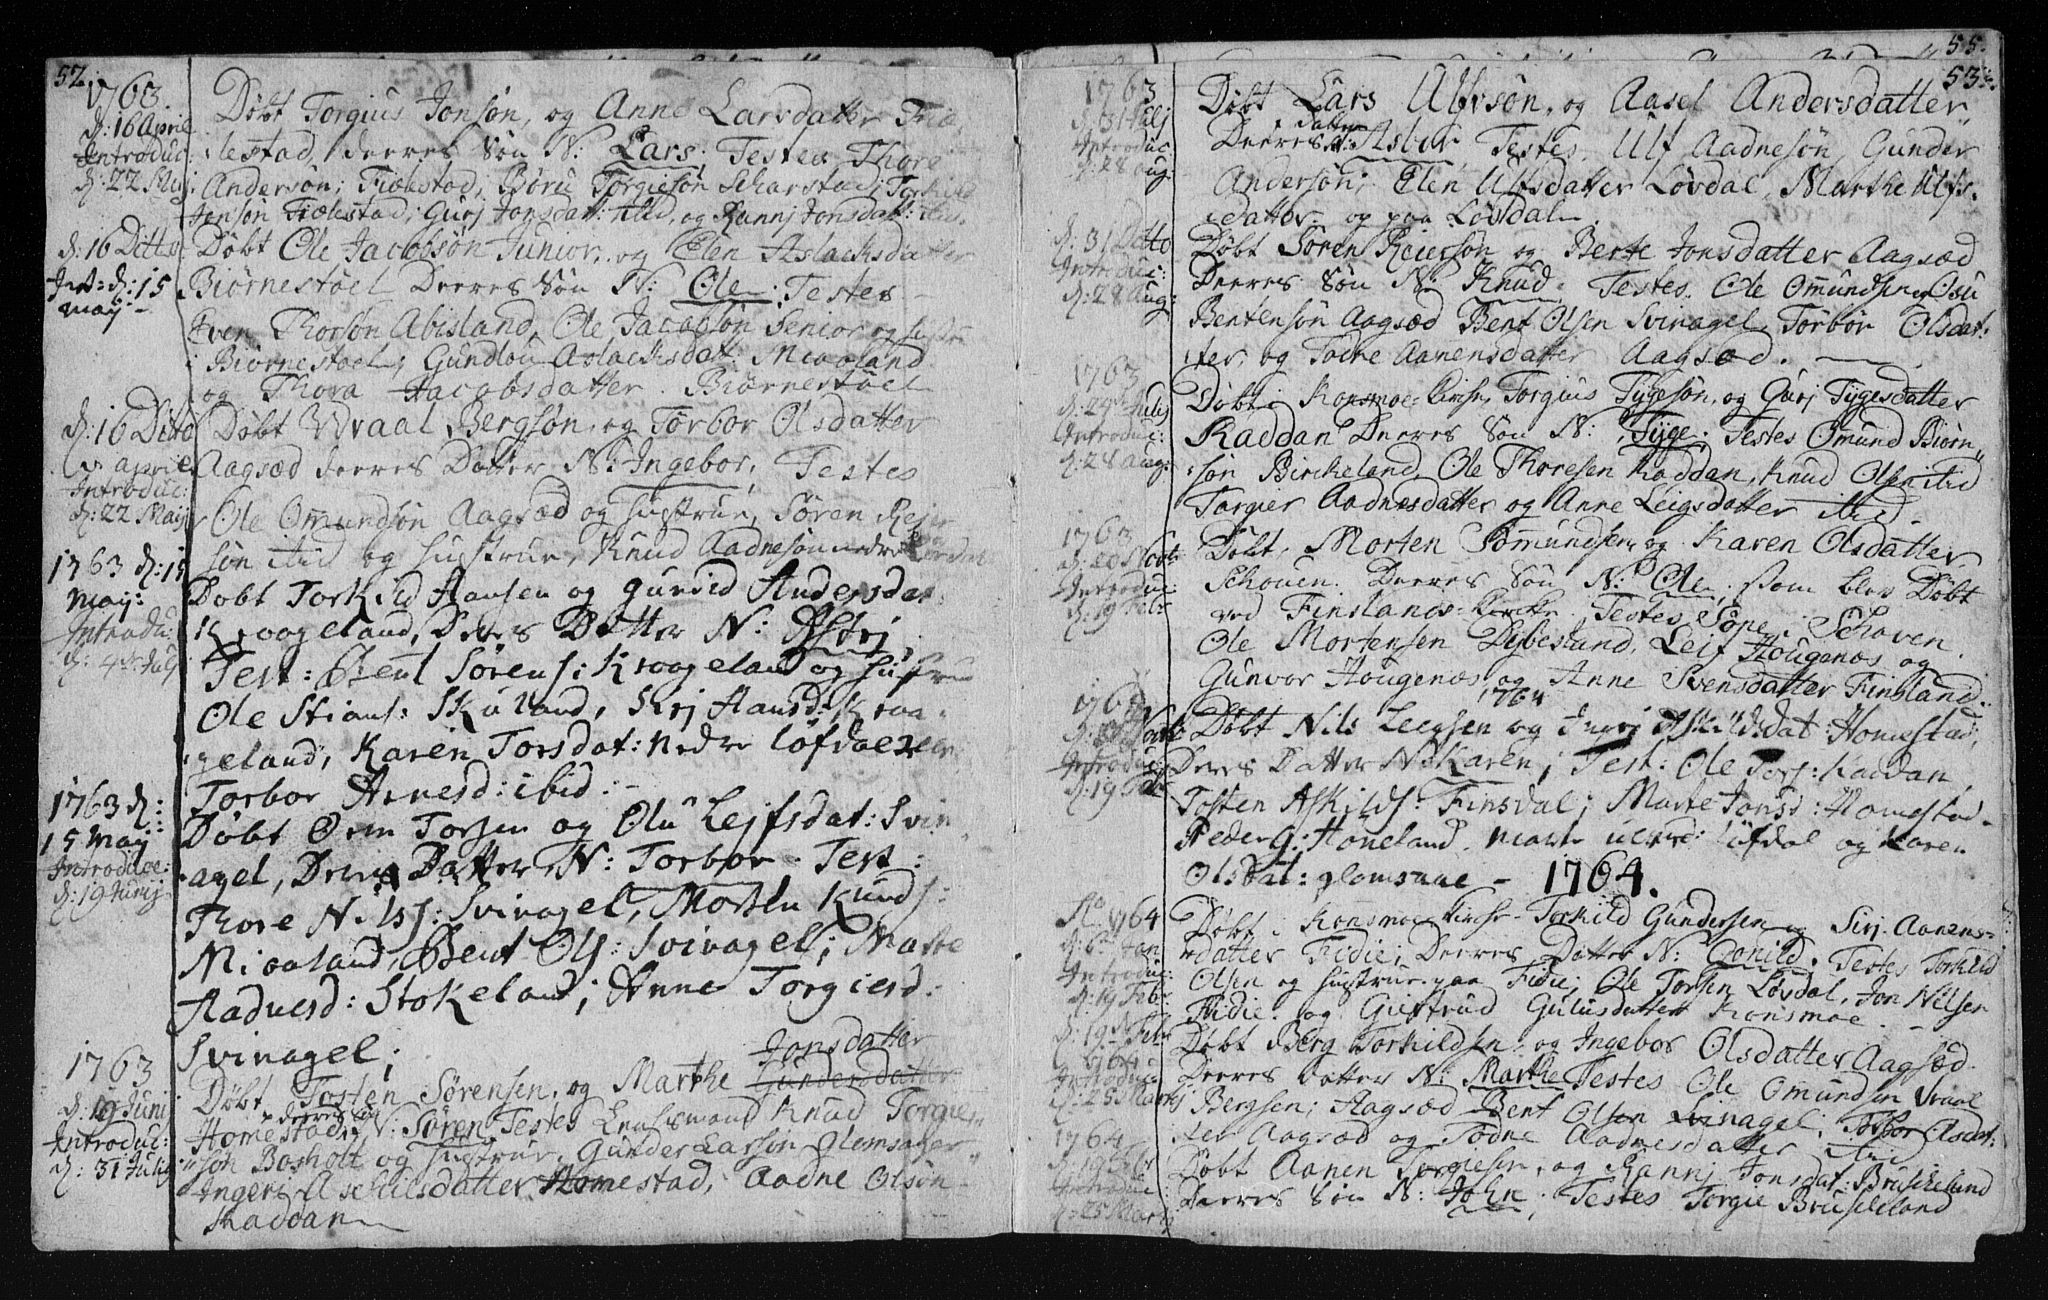 52.
1763.
d: 16 Aprie
Introduc:
d: 22 Maij
Døbt Torgius Jonsøn, og Anne Larsdatter Fiæ,
lestad, deeres Søn N: Lars; Testes Thore
Andersøn; Fiælestad; Børu Torgiesøn Scharstad; Torkild
Jonsøn Fiælestad; Gurj Jonsdat: ibid, og Rannj Jonsdat:
d: 16 Ditto
Int: d: 15
maij
Døbt Ole Jacobsøn Junior, og Elen Aslachsdatter
Biørnestøel Deeres Søn N: Ole; Testes
Iven Thorsøn Abisland, Ole Jacobsøn Senior og
Biørnestoel; Gundlou Aslachsdat: Miaaland
og Thora Jacobsdatter Biørnestøel
d: 16 Ditto
aprie
Introduc:
d: 22 Maij
Døbt Vraal Bergsøn, og Torbor Olsdatter
Aagsæd deeres Datter N: Ingebor, Testes
Ole Omundsøn Aagsæd og hustrue, Søren Reier
søn itid og hustrue, Knud Aadnesøn nedre
1763 d: 15
May:
Introdu:
d: 4de July
Døbt Torkild Hansen og gunild Andersdat
Kroageland, Deres Datter N: Astrj,
Test: Bent Sørens: Kroageland og hustru
Ole Stians: Skuland, Sirj Hansd: Kroa
geland, Karen Torsdat: nedre Løfdal
Torbor Arnesd: ibid:
1763 d:
15 May:
Introduce:
d: 19 Junij
Døbt Orm Torsen og Olu Lejfsdat: Svin
agel, Deris Datter N: Torbor. Test:
Thore Nilss: Svinagel, Morten Knuds:
Miaaland, Bent Ols: Svinagel; Marte
Aadnesd: Stokeland; Anne Torgiersd:
Svinagel;
1763
d: 19 Juni
Introduc:
d: 31 Julij
Jonsdatter
Døbt Tosten Sørensen, og Marthe Gundersdatter
Homestad, deeres søn N: Søren Testes Lensmand Knud Torgie
søn Bosholt og hustrue, Gunder Larssøn Glomsager
Ingeri Aschilsdatter Homestad, Aadne Olsøn
Haddan
55.
53.
1763
d: 31 Julij
Introduc
d: 28 aug:
Døbt Lars Ulfsøn, og Aasel Andersdatter
Deeres datter N: Asbor, Testes, Ulf Aadnesøn, Gunder
Andersøn; Elen Ulfsdatter Løvdal, Marthe Ulfs
datter og paa Løvdal
d: 31 Ditto
Introduc:
d: 28 Aug:
Døbt Søren Reiersøn og Berte Jonsdatter Aagsæd
Deeres Søn N: Knud. Testes. Ole Omundsen og Osu
Bentensøn Aagsæd Bent Olsen Svinagel, Torbor Olsdat:
ter, og Todne Aanensdatter Aagsæd.
1763
d: 24de Julij
Introduc:
d: 28 Aug:
Døbt i Konsmoe Kirche, Torgius Tygesøn, og Gurj Tygesdatter
Kaddan Deeres Søn N: Tyge. Testes Omund Biørn
søn Birckeland, Ole Thoresen Kaddan, Knud Olsen itid
Torgier Aadnesdatter og Anne Leigsdatter itid.
1763
d: 20 Novbr
Introduc:
d: 19 Febr
Døbt, Morten Somundsen, og Karen Olsdatter
Schouen. Deeres Søn N: Ole, som blev Døbt
ved Finslands Kirche. Testes Soper Schaven.
Ole Mortensen Lybesland, Leif Hougenæs og
Gunvor Hougenæs og Anne Svensdatter Finsland.
1764
Introduc
d: 19 Febr
Døbt Nils Leegsen og Ingrj Askildsdat: Homestad,
Deres Datter N: Karen; Test: Ole Tors: Kaddan,
Tosten Askilds: Finsdal; Marte Jonsd: Homestad
Peder G: Honeland. Marte Ulvsd: Løfdal og Karen
Olsdat: glomsaae - 1764.
Ao 1764
d: 6te Jan
Introduc:
d: 19 Febr
Døbt i Konsmoe Kirche Torkild Gundersen og Sirj Aanens
datter Fidie; Deeres Datter N: Gonild. Testes Torkild
Olsen og hustrue paa Fidie; Ole Torsen Løvdal, Jon Nilsen
Fidie og Giertrud Gulusdatter Konsmoe.
d: 19 Febr
1764
Introduc:
d: 25 Martj
Døbt Berg Torkildsen, og Ingebor Olsdatter Aagsæd
Deeres Datter N: Marthe Testes Ole Omundsen Vraal
Bergsen; Aagsæd Bent Olsen Svinagel; Torbor Olsdat:
ter Aagsæd og Todne Aadnesdatter itid
1764
d: 19 Febr
Introduc:
d: 25 Martj
Døbt Aanen Torgiesen, og Rannj Jonsdat: Bruskeland
Deeres Søn N: John; Testes Torgie Bruskeland